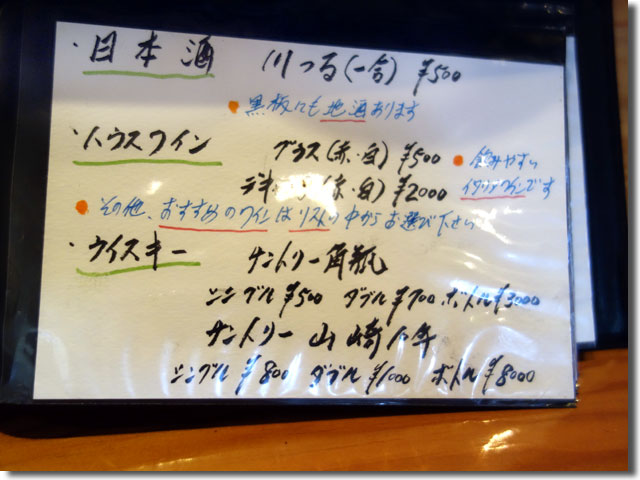 ・日本酒 川つる(一合) ¥500
●黒板にも地酒あります
・ハウスワイン グラス(赤・白) ¥500 ●飲みやすい
デキャンタ(赤・白) ¥2000 イタリアワインです
●その他、おすすめのワインはリストの中からお選び下さい
・ウイスキー サントリー角瓶
シングル ¥500 ダブル ¥700 ボトル ¥3000
サントリー 山崎
シングル ¥800 ダブル ¥1000 ボトル ¥8000